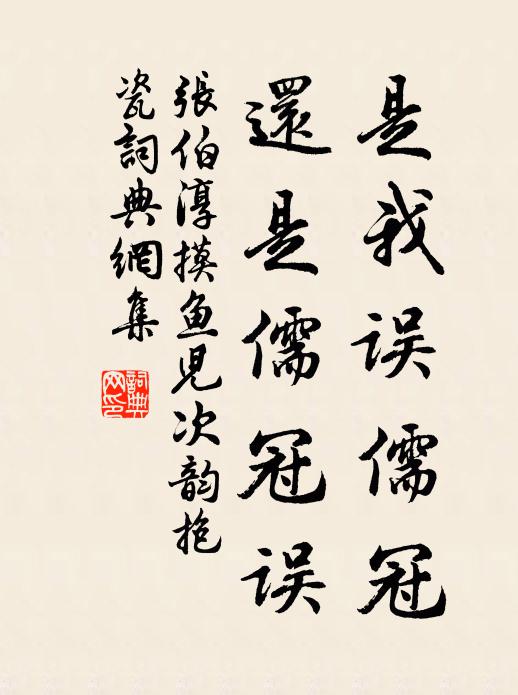 是我误儒冠
還是儒冠误
張伯淳摸鱼兒次韵抱
瓷詞典網集
詞典网印